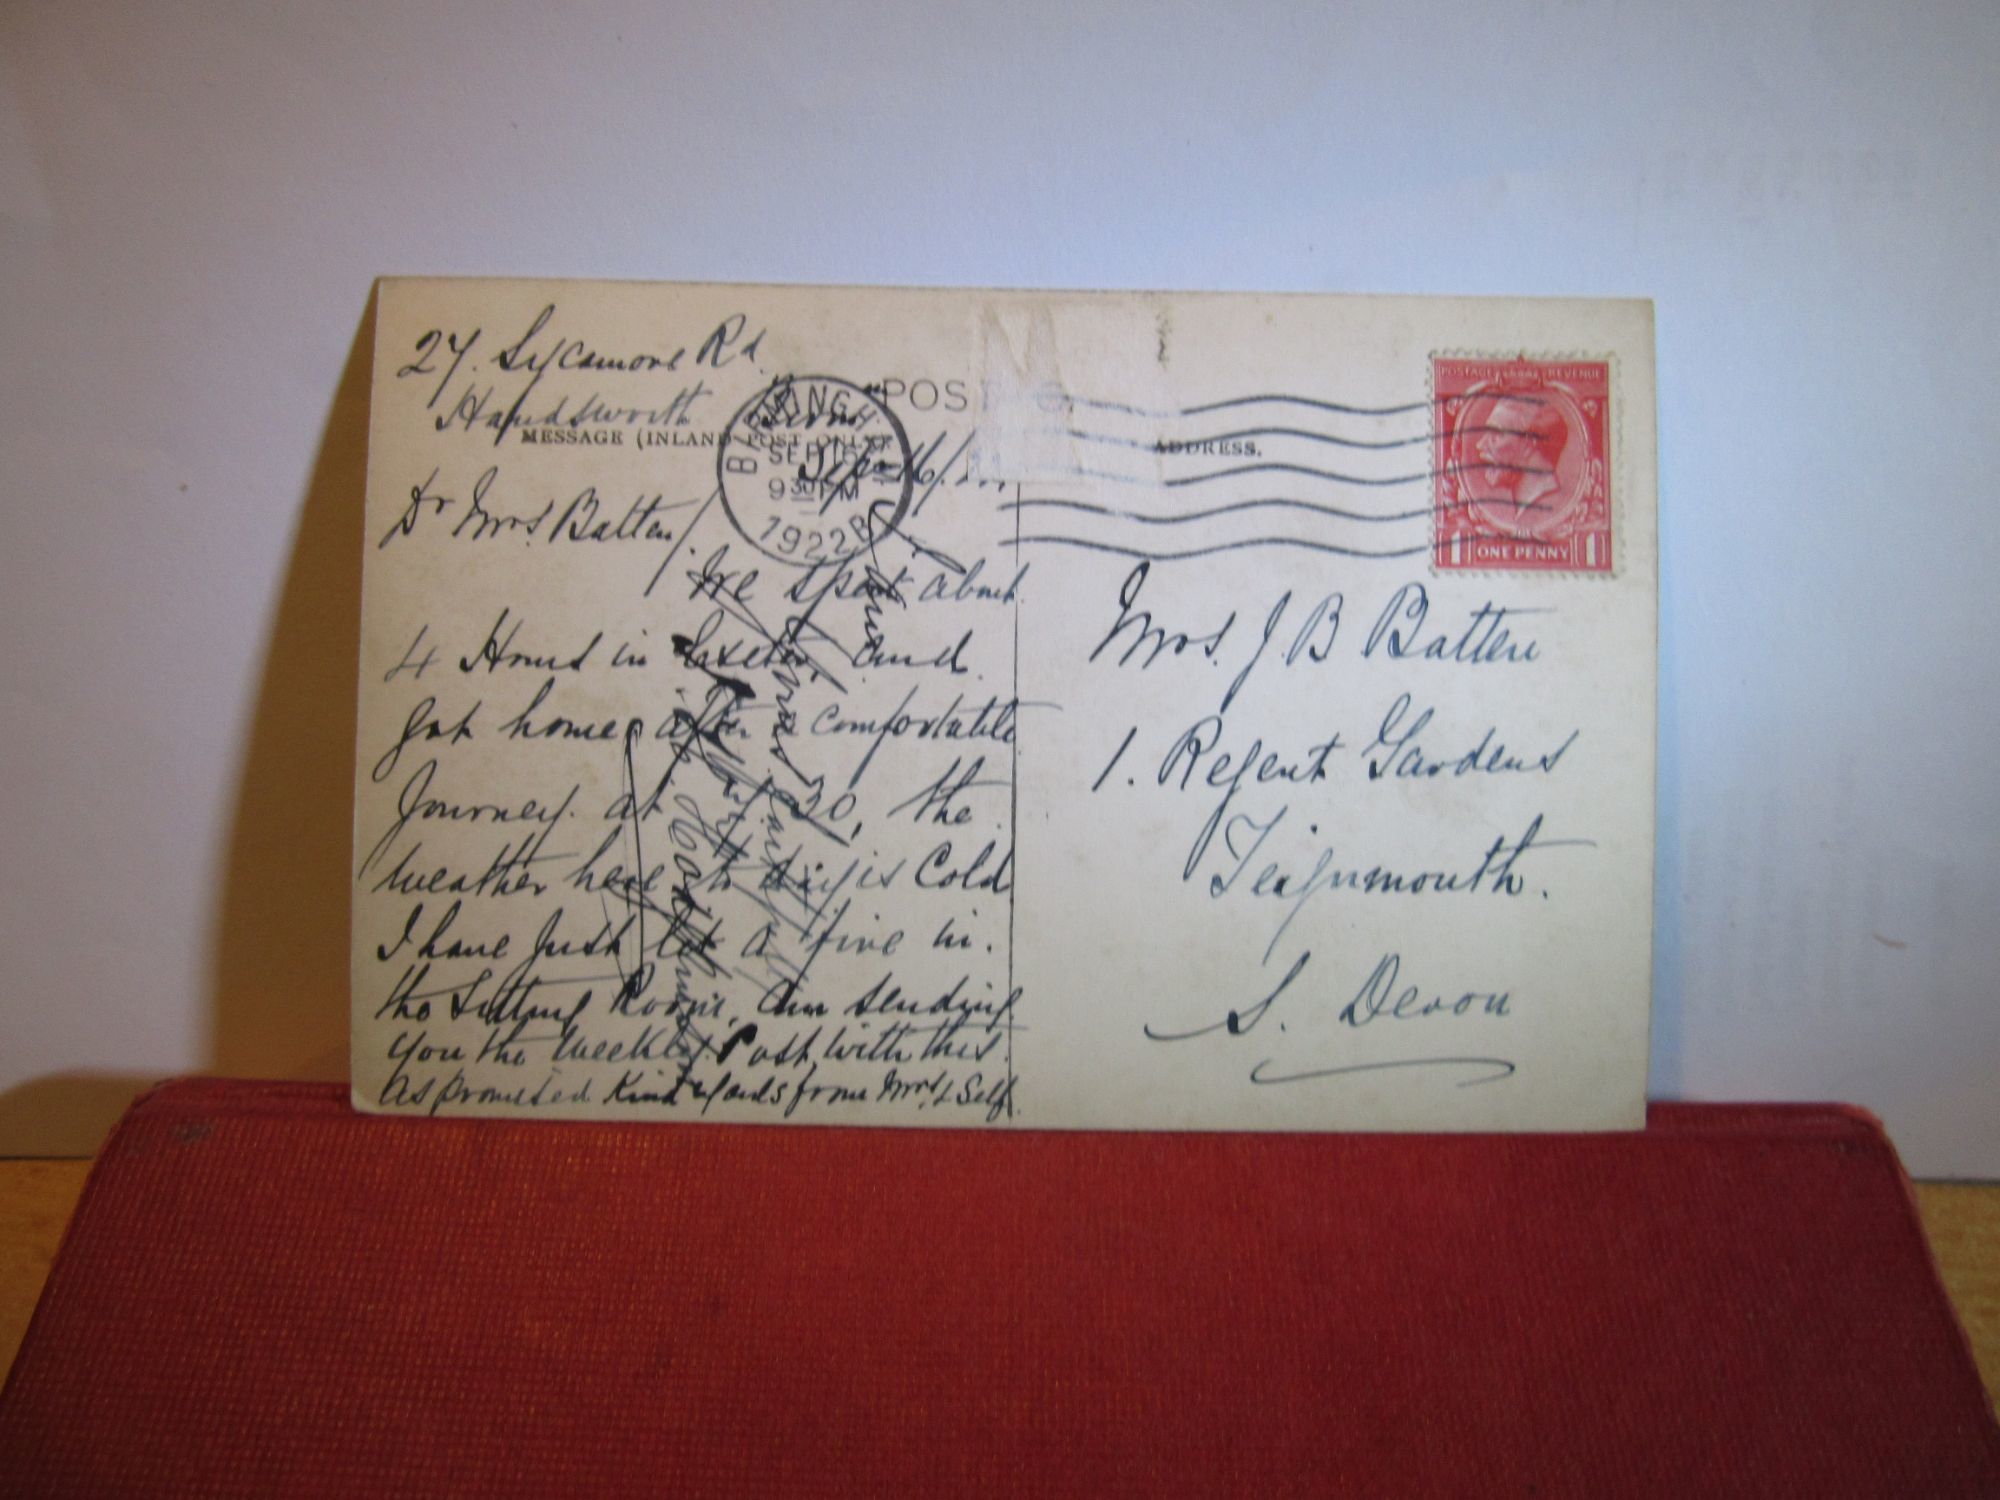 27. Sycamore Rd
Handsworth
MESSAGE (INLAND POST ONLY)
POST C
ADDRESS.
BIRMINGHAM
SEP 16
9 30 PM
1922
Sept 16/
Dr Mrs. Batten/.
We spent about
4 Hours in Exeter, and
got home, after a comfortable
Journey. at 30, the
weather here to day is Cold
I have just lit a fire in.
the Sitting Room, am sending
you the Weekly Post, with this.
as promised Kind regards from Mrs. & Self.
Yours
POSTAGE REVENUE
1 ONE PENNY 1
Mrs. J B Batten
1. Regent Gardens
Teignmouth.
S. Devon